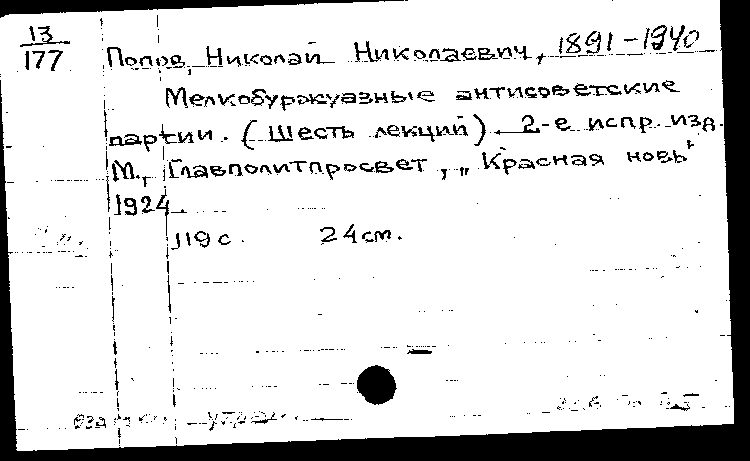 13
177
Попов, Николай Николаевич, 1891-1940
Мелкобуржуазные антисоветские
партии. (Шесть лекций). 2-е испр. изд.
М., Главполитпросвет, „Красная новь"
1924.
119 с. 24 см.